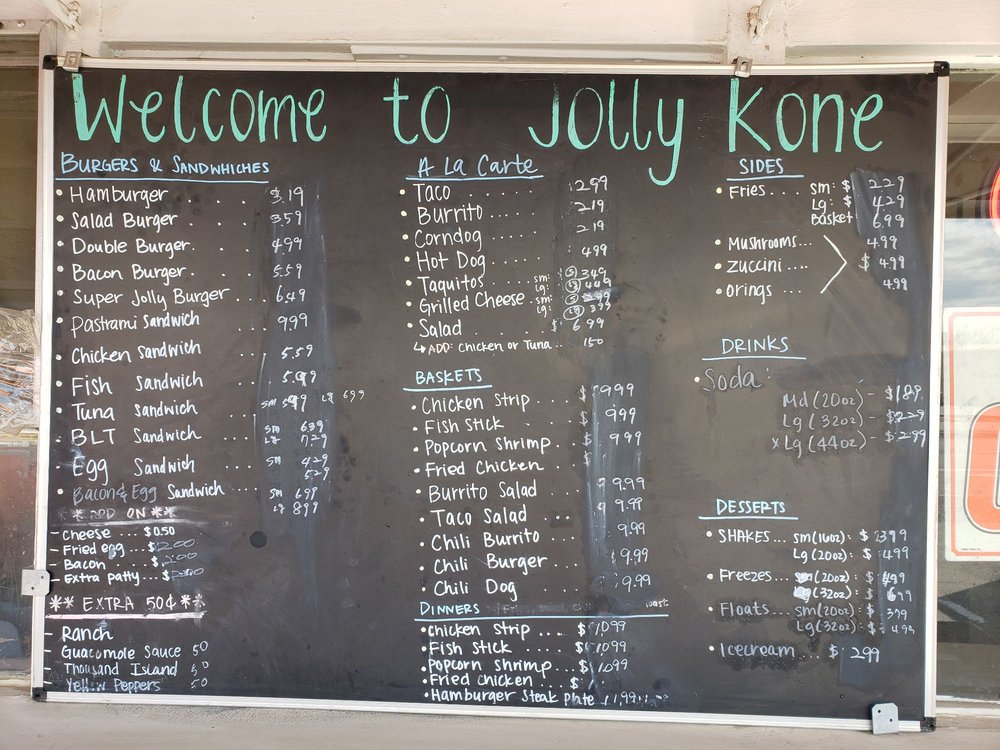 Welcome to Jolly Kone
BURGERS & SANDWHICHES
• Hamburger . . . . 3.19
• Salad Burger . . 3.59
• Double Burger. . . 4.99
• Bacon Burger. . . 5.59
• Super Jolly Burger . . . 6.49
• Pastrami Sandwich . . . 999
• Chicken Sandwich . . . 5.59
• Fish Sandwich . . . . 5.99
• Tuna Sandwich . . . . sm 599 Lg 699
• BLT Sandwich . . . . sm 639
Lg 729
Egg Sandwich . . . . sm 429
529
• Bacon & Egg Sandwich . . . . sm 699
Lg 899
** ADD ON **
- Cheese ... $0.50
- Fried egg ... $200
- Bacon ... $200
- Extra patty... $
** EXTRA 50¢ **
- Ranch
- Guacomole Sauce 50
- Thousand Island 50
- Yellow Peppers 50
A La Carte
• Taco . . . . . . 299
• Burrito . . . . . 219
• Corndog . . . . 219
• Hot Dog . . . . 499
• Taquitos . . . . sm: $ 349
Lg: $ 449
• Grilled Cheese . . . sm: $
Lg 399
• Salad . . . . . . $ 699
↳ ADD: Chicken or Tuna . . 150
BASKETS
• Chicken Strip . . . $ 999
• Fish Stick . . . . $ 999
• Popcorn Shrimp . . $ 999
• Fried Chicken . . . $
• Burrito Salad . . . 9.99
• Taco Salad . . . . 9.99
• Chili Burrito . . . 9.99
• Chili Burger . . . 9.99
• Chili Dog . . . . 9.99
DINNERS
• Chicken strip . . . . $ 1099
• Fish Stick . . . . . $1099
• Popcorn shrimp . . . $ 1099
• Fried chicken . . . . $
• Hamburger Steak Plate 11.99
SIDES
• Fries . . . . sm: $ 229
Lg: $ 429
Basket 6.99
• Mushrooms... 4.99
• Zuccini .... $ 4.99
• Orings 4.99
DRINKS
• Soda :
Md (20oz) - $189
Lg (32oz) - $229
xLg (44oz) - $289
DESSERTS
• SHAKES... sm(16oz): $ 399
Lg (20oz): $ 499
• Freezes... sm(20oz): $ 499
(32oz): $ 699
• Floats... sm(20oz): $ 399
Lg(32oz): $ 499
• Icecream ... $ 299